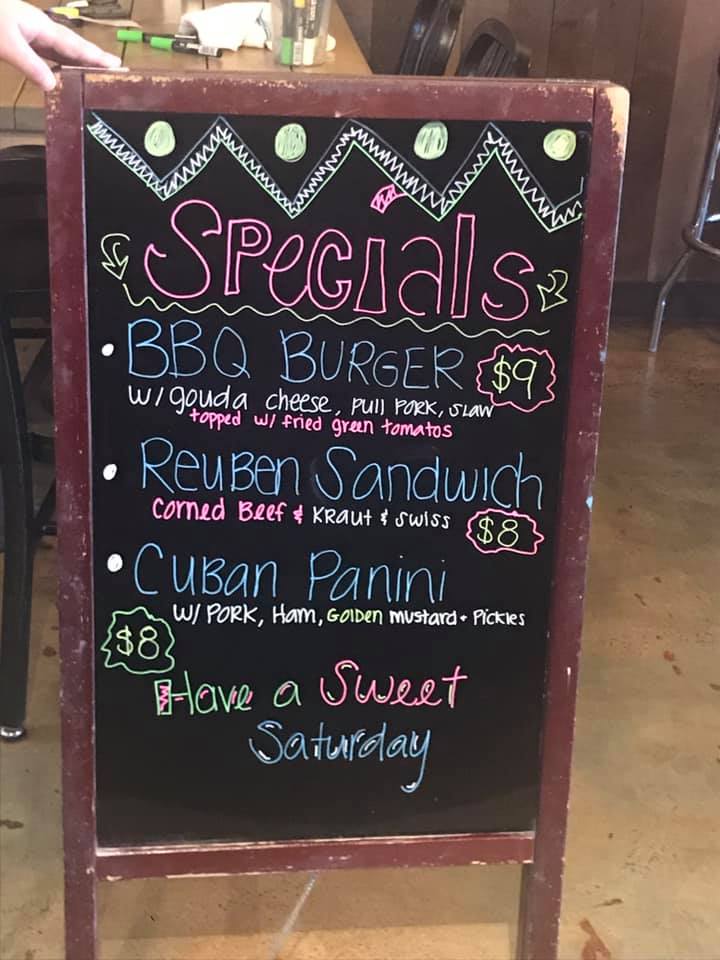 Specials
BBQ BURGER $9
w/ gouda cheese, pull PORK, SLAW
topped w/ fried green tomatos
ReuBen Sandwich
Corned Beef & KRAUT & SWISS $8
CuBan Panini
W/ PORK, Ham, GOlDEN mustard + PickLes
$8
Have a Sweet
Saturday